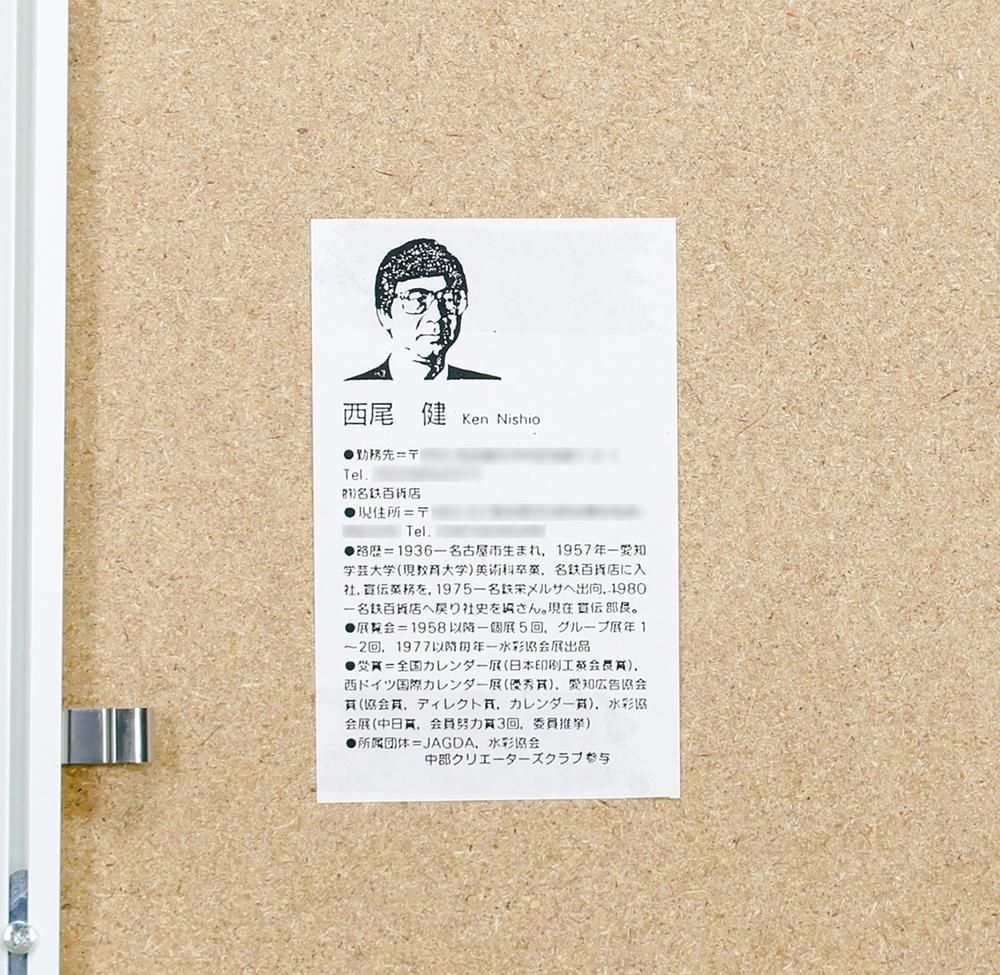 西尾 健 Ken Nishio
●勤務先=〒
Tel.
㈱名鉄百貨店
●現住所=〒
Tel.
●略歴=1936—名古屋市生まれ，1957年—愛知
学芸大学(現教育大学)美術科卒業，名鉄百貨店に入
社，宣伝業務を，1975—名鉄栄メルサへ出向，1980
—名鉄百貨店へ戻り社史を編さん。現在宣伝部長。
●展覧会=1958以降—個展5回，グループ展年1
〜2回，1977以降毎年—水彩協会展出品
●受賞=全国カレンダー展(日本印刷工業会長賞)，
西ドイツ国際カレンダー展(優秀賞)，愛知広告協会
賞(協会賞，ディレクト賞，カレンダー賞)，水彩協
会展(中日賞，会員努力賞3回，委員推挙)
●所属団体=JAGDA，水彩協会
中部クリエーターズクラブ参与